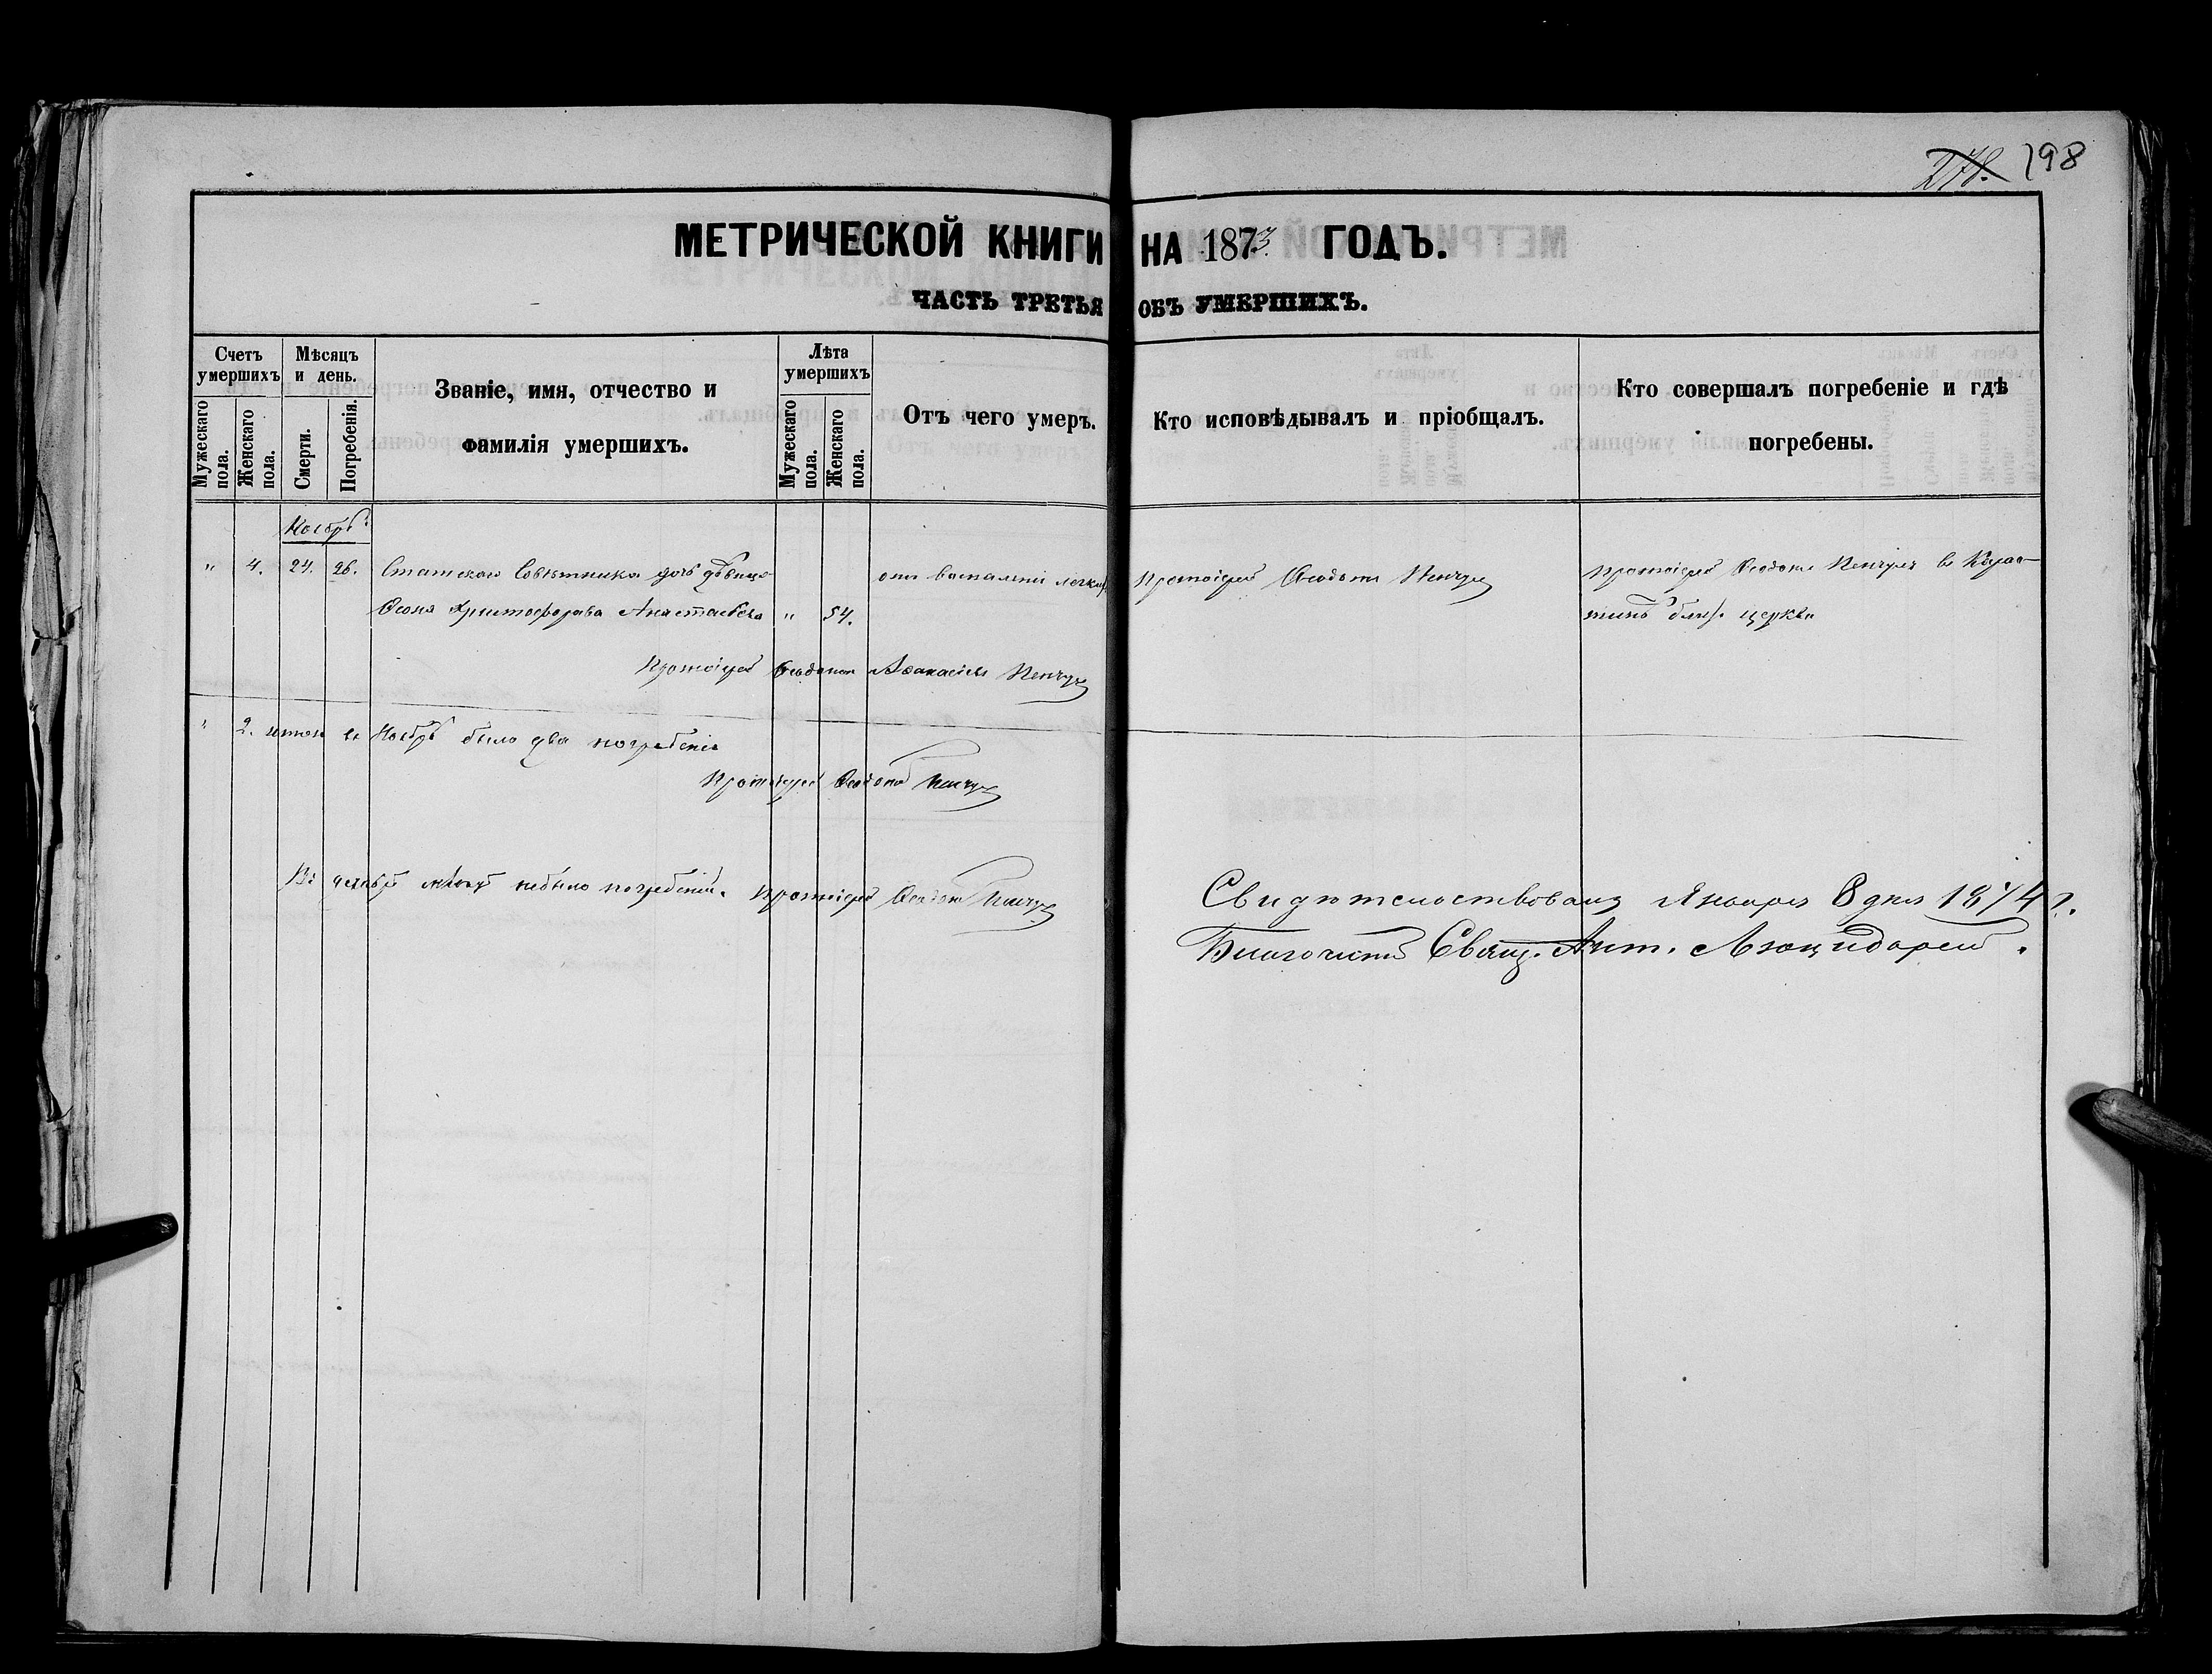 278. 198
МЕТРИЧЕСКОЙ КНИГИ НА 1873 ГОДЪ.
ЧАСТЬ ТРЕТЬЯ ОБЪ УМЕРШИХЪ.
Счетъ умершихъ
Мужескаго пола.
Женскаго пола.
Мѣсяцъ и день.
Смерти.
Погребенія.
Званіе, имя, отчество и
фамилія умершихъ.
Лѣта умершихъ
Мужескаго пола.
Женскаго пола.
Отъ чего умеръ.
Кто исповѣдывалъ и пріобщалъ.
Кто совершалъ погребеніе и гдѣ
погребены.
Ноябрь
" 4. 24. 26. Статскаго Совѣтника дочь дѣвица отъ воспаленія легкихъ Протоіерей Ѳеодотъ Протоіерей Ѳеодотъ въ
Христофорова " 54. близ. церкви
Протоіерей Ѳеодотъ Аѳанасіевъ
" 2. итого въ Ноябрѣ было два погребенія
Протоіерей Ѳеодотъ
Въ декабрѣ мѣсяцѣ небыло погребеній. Протоіерей Ѳеодотъ
Свидѣтельствовалъ Января 8 дня 1874 г.
Благочинный Свящ. Ант.